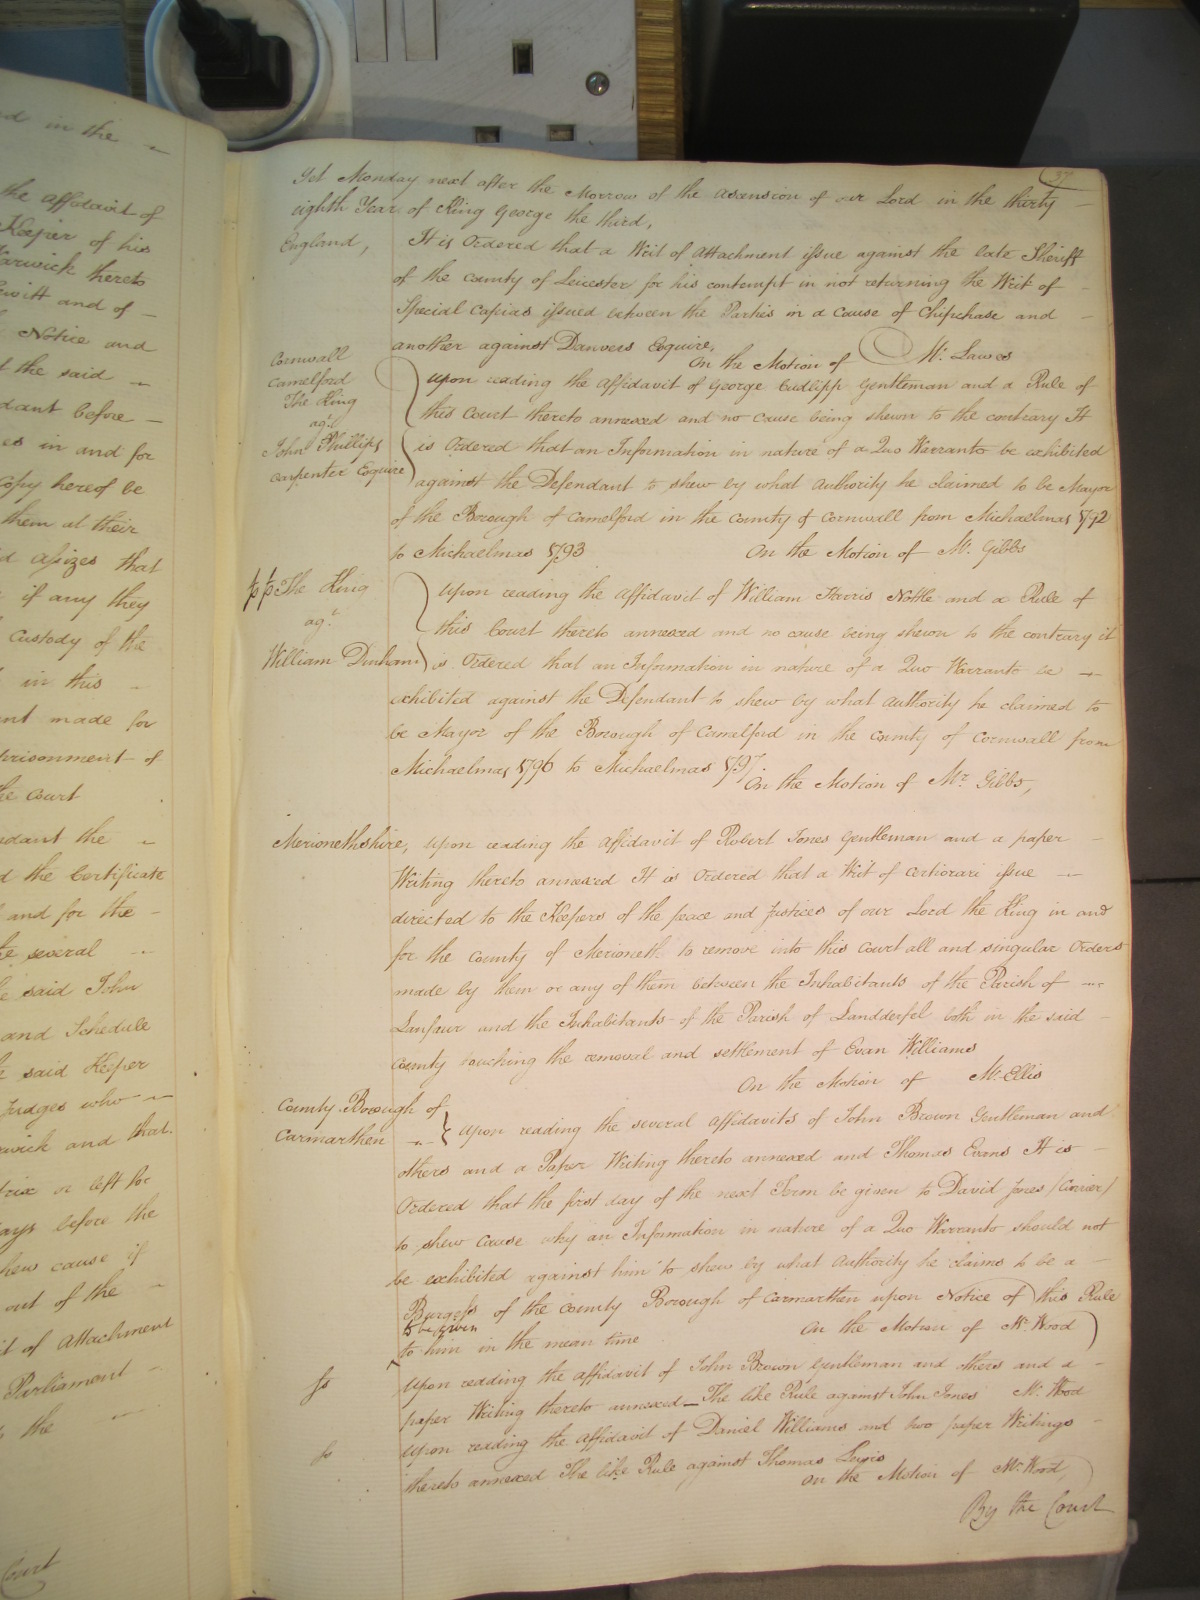 d in the
the Affidavit of
Keeper of his
Warwick thereto
and of
Notice and
t the said
dant before
es in and for
Copy hereof be
them at their
d Assizes that
if any they
Custody of the
in this
ent made for
prisonment of
the Court
ndant the
d the Certificate
and for the
the several
e said John
and Schedule
e said Keeper
Judges who
rwick and that
or left for
ays before the
hew cause if
out of the
it of Attachment
Parliament
the
Court
37
Yet Monday next after the Morrow of the Ascension of our Lord in the thirty
eighth Year of King George the third,
England,
It is Ordered that a Writ of Attachment issue against the late Sheriff
of the County of Leicester for his contempt in not returning the Writ of
Special Capias issued between the Parties in a Cause of Chipchase and
another against Danvers Esquire,
On the Motion of Mr. Lawes
Cornwall
Camelford
The King
agt.
John Phillips
Carpenter Esquire
Upon reading the Affidavit of George Cudlipp Gentleman and a Rule of
this Court thereto annexed and no cause being shewn to the contrary It
is Ordered that an Information in nature of a Quo Warranto be exhibited
against the Defendant to shew by what Authority he claimed to be Mayor
of the Borough of Camelford in the County of Cornwall from Michaelmas 1792
to Michaelmas 1793
On the Motion of Mr. Gibbs
The King
agt.
William Dinham
Upon reading the Affidavit of William Harris Nottle and a Rule of
this Court thereto annexed and no cause being shewn to the contrary it
is Ordered that an Information in nature of a Quo Warranto be
exhibited against the Defendant to shew by what Authority he claimed to
be Mayor of the Borough of Camelford in the County of Cornwall from
Michaelmas 1796 to Michaelmas 1797
On the Motion of Mr. Gibbs,
Merionethshire, Upon reading the Affidavit of Robert Jones Gentleman and a paper
Writing thereto annexed It is Ordered that a Writ of Certiorari issue
directed to the Keepers of the peace and Justices of our Lord the King in and
for the County of Merioneth to remove into this Court all and singular Orders
made by them or any of them between the Inhabitants of the Parish of
Lanfawr and the Inhabitants of the Parish of Landderfel both in the said
County touching the removal and settlement of Evan Williams
On the Motion of Mr. Ellis
County Borough of
Carmarthen
Upon reading the several Affidavits of John Brown Gentleman and
others and a Paper Writing thereto annexed and Thomas Evans It is
Ordered that the first day of the next Term be given to David Jones /Currier/
to shew Cause why an Information in nature of a Quo Warranto should not
be exhibited against him to shew by what Authority he claims to be a
Burgess of the County Borough of Carmarthen upon Notice of this Rule
to be given
to him in the mean time
On the Motion of Mr. Wood
So
Upon reading the Affidavit of John Brown Gentleman and others and a
paper Writing thereto annexed The like Rule against John Jones Mr. Wood
So
Upon reading the Affidavit of Daniel Williams and two paper Writings
thereto annexed The like Rule against Thomas Lewis
On the Motion of Mr. Wood,
By the Court